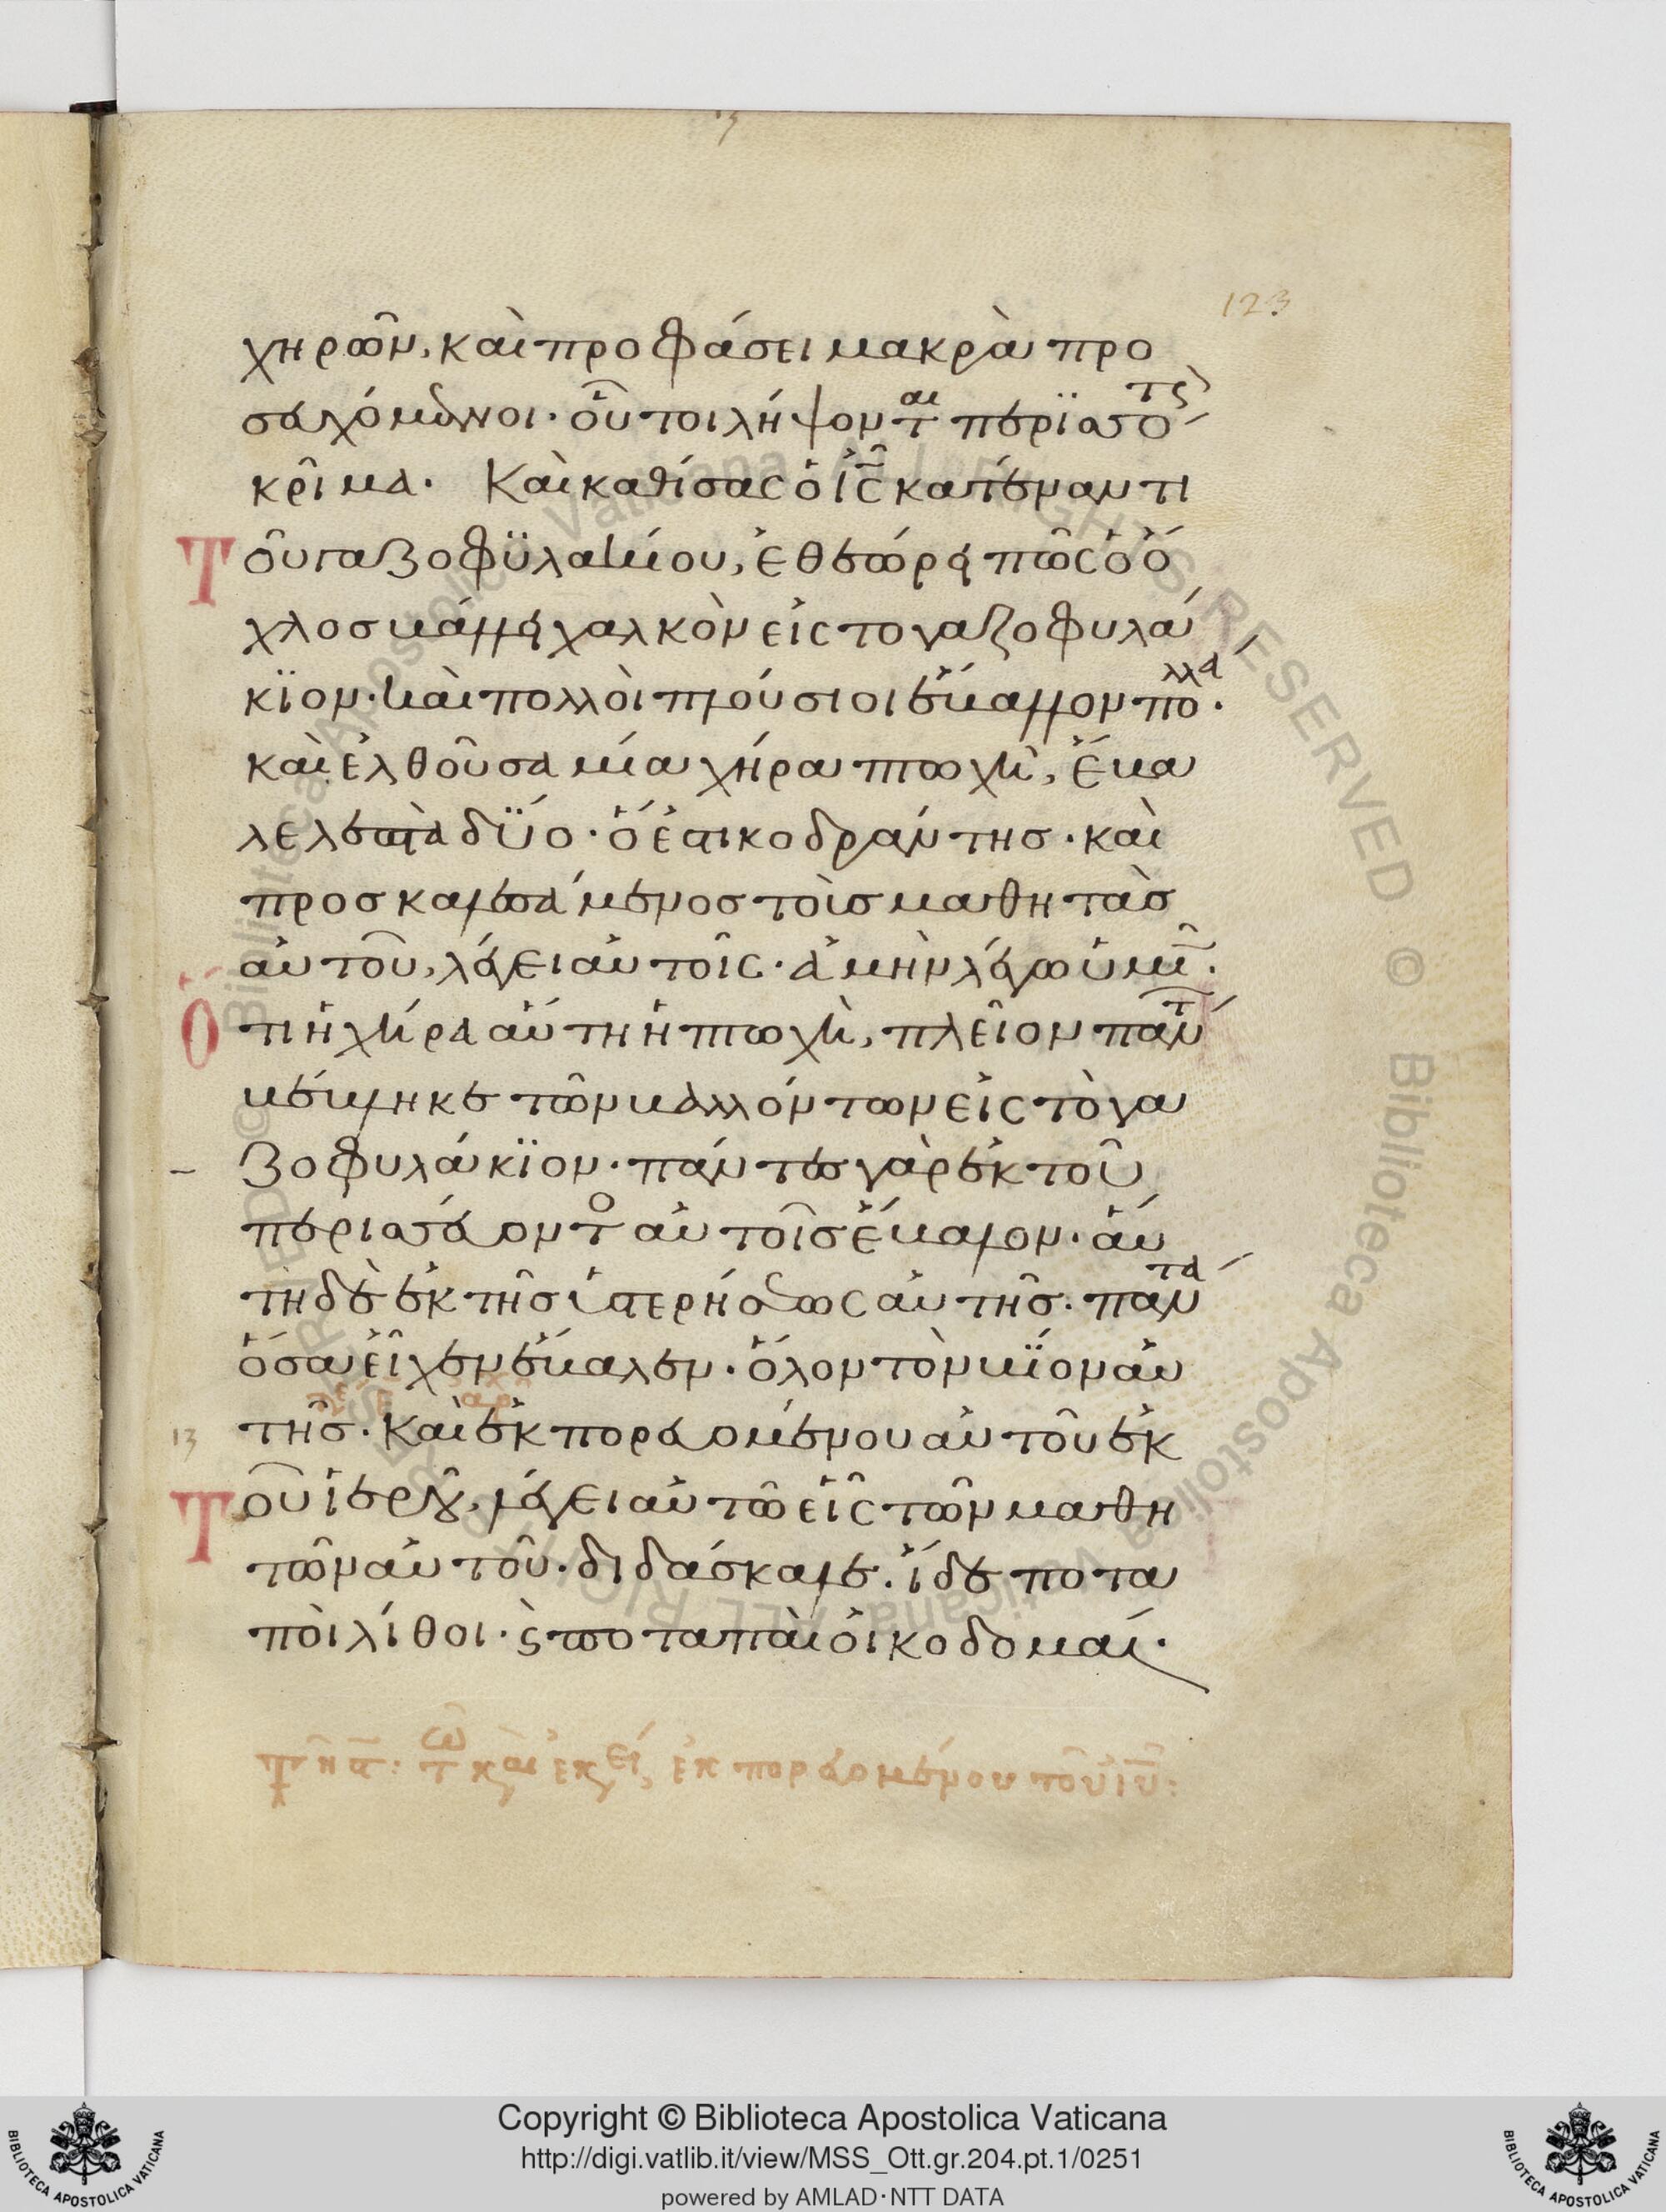 123
χηρῶν, καὶ προφάσει μακρὰ προ
σευχόμενοι· οὗτοι λήψοντ αι περϊσσό τς
κρῖμα. Καὶ καθίσας ὁ ἰς̅ κατέναντι
τοῦ γαζοφϋλακίου, ἐθεώρει πῶς ὁ ὄ
χλοσ βάλλει χαλκὸν εἰς το γαζοφυλά
κϊον· καὶ πολλοὶ πλούσιοι ἔβαλλον πο λλὰ.
καὶ ἐλθοῦσα μία χήρα πτωχὴ, ἔβα
λε λεπτὰ δϋο· ὅ ἐστι κοδράντησ· καὶ
προσκαλεσάμενοσ τοὺσ μαθητὰσ
αὐτοῦ, λέγει αὐτοῖς· ἀμὴν λέγω ὑμῖ̅.
ὅτι ἡ χήρα αὕτη ἡ πτωχὴ, πλεῖον πάν τ
βέβληκε τῶν βαλλόντων εἰς τὸ γα
ζοφυλάκϊον· πάντεσ γὰρ ἐκ τοῦ
περισσεύοντ ο αὐτοῖσ ἔβαλον· αὕ
τη δὲ ἐκ τῆσ ὑστερήσεως αὐτῆσ. πάν τα
ὅσα εἶχεν ἔβαλεν· ὅλον τὸν βϊον αὐ
τῆσ. Καὶ ἐκπορευομένου αὐτοῦ ἐκ
13
τοῦ ἱεροῦ, λέγει αὐτῶ εἷς τῶν μαθη
τῶν αὐτοῦ· διδάσκαλε. ἴδε ποτα
ποὶ λίθοι· ϛ ποταπαὶ οἰκοδομαί·
τ και εκει, ἐκπορευομένου τοῦ ἰυ̅:
Copyright © Biblioteca Apostolica Vaticana
http://digi.vatlib.it/view/MSS_Ott.gr.204.pt.1/0251
powered by AMLAD·NTT DATA
BIBLIOTECA APOSTOLICA VATICANA
BIBLIOTECA APOSTOLICA VATICANA